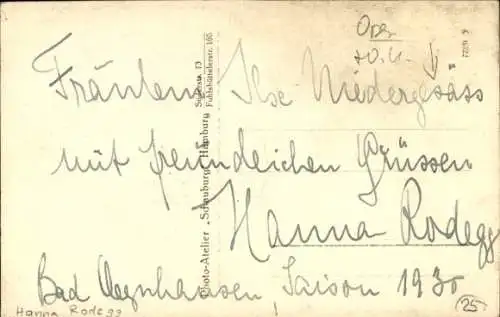 Oper
Fräulein Ilse Niedergesäss
mit freundlichen Grüssen
Hanna Rodegg
Bad Oeynhausen, Saison 1930
Hanna Rodegg
25
Photo-Atelier „Schauburg“ Hamburg
13
Fuhlsbüttelerstr. 165